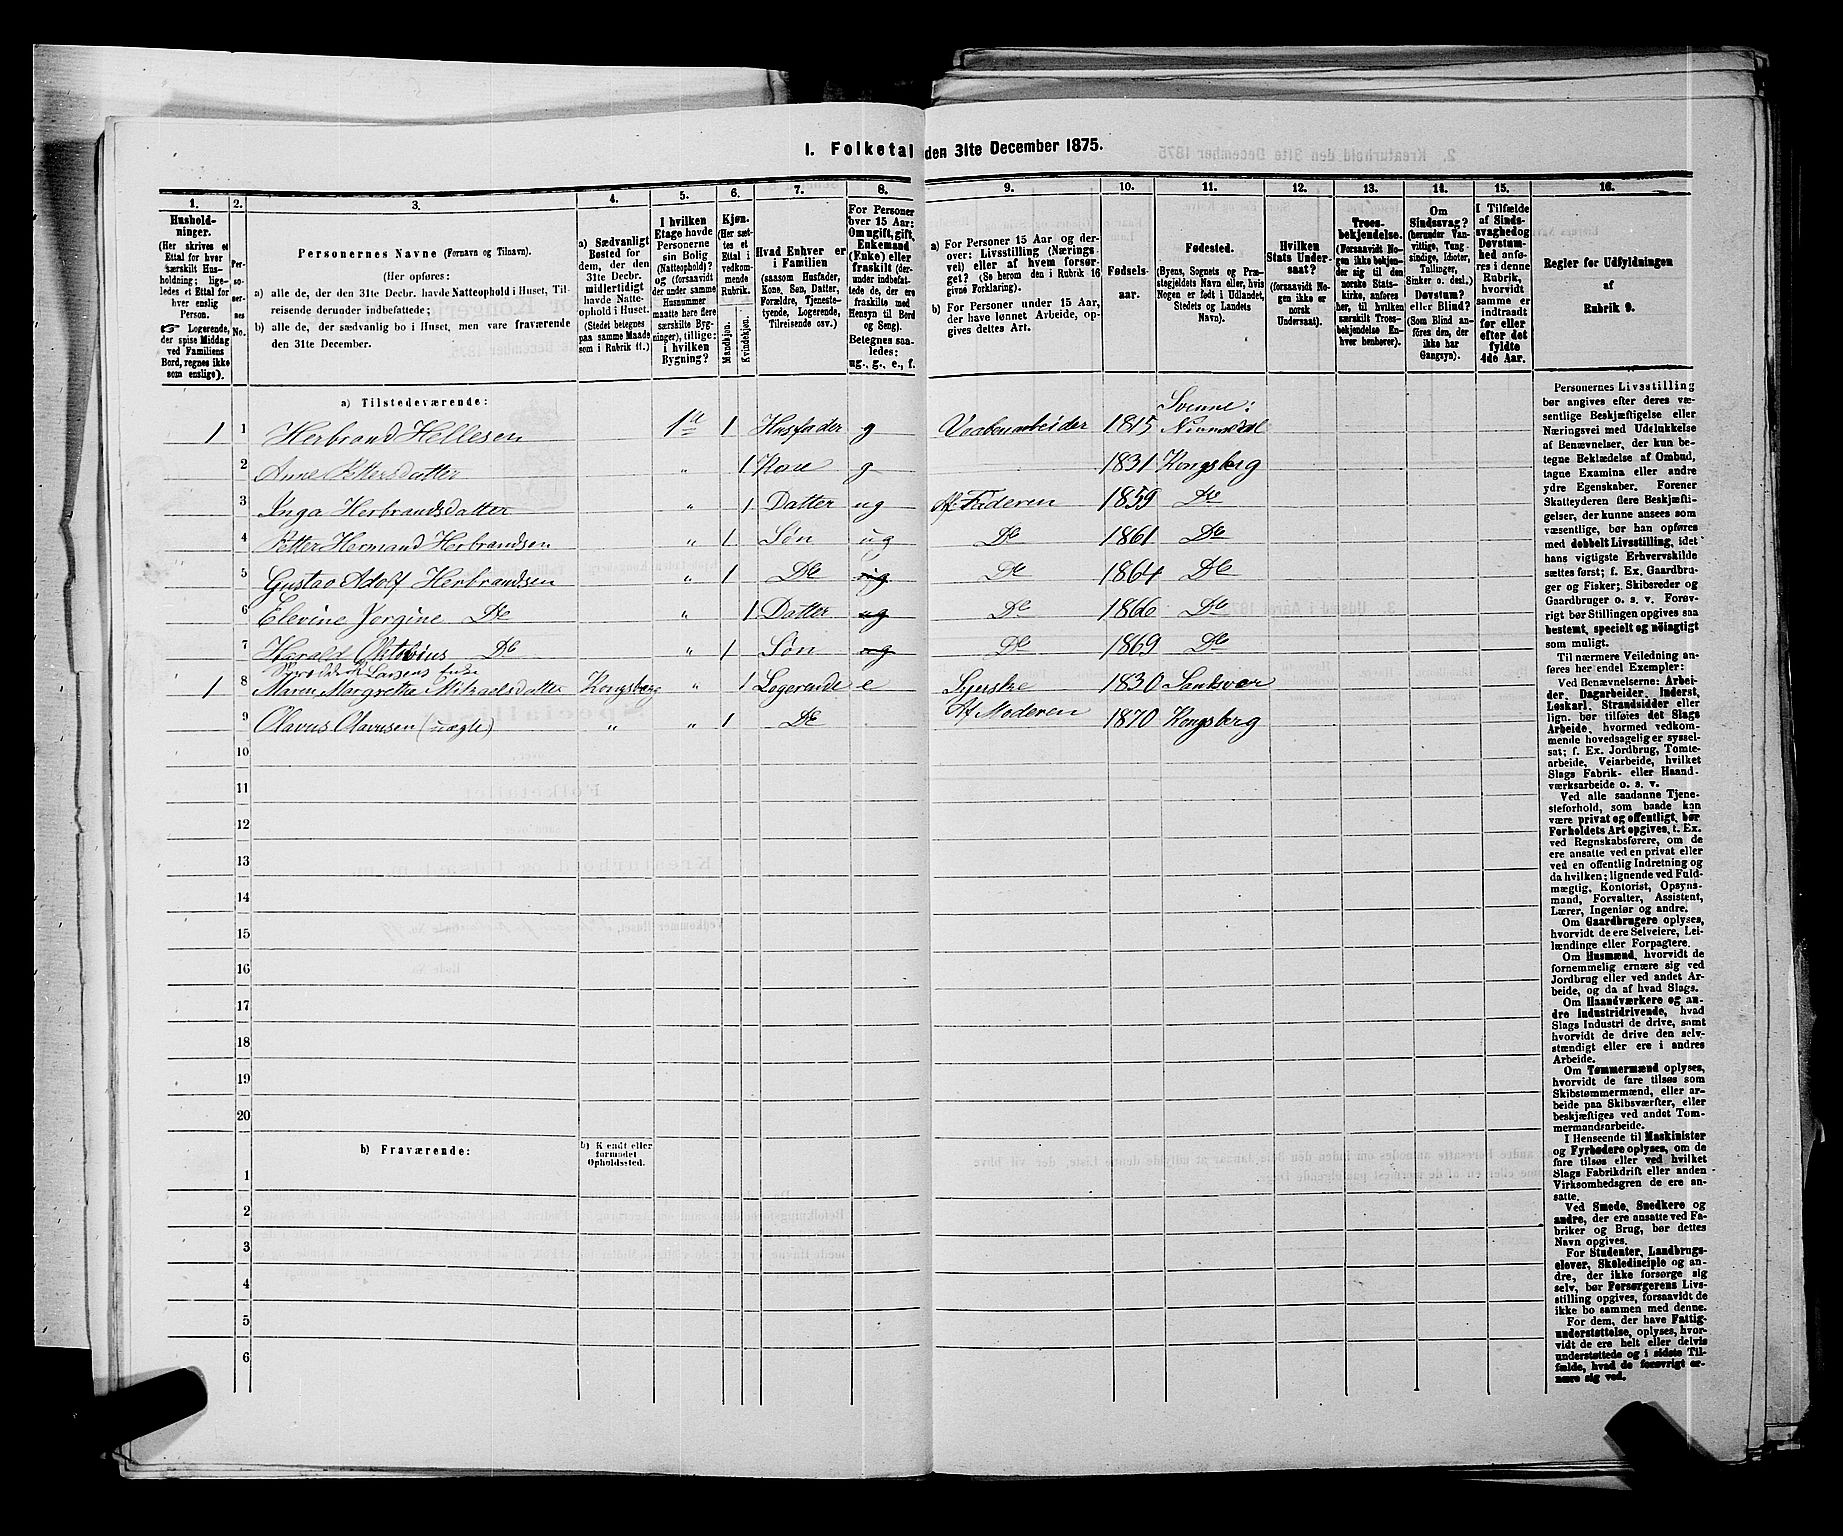 1. Folketal den 31te December 1875.
1.
2.
3.
4.
5.
6.
7.
8.
9.
10.
11.
12.
13.
14.
15.
16.
Hushold-
ninger.
(Her skrives et
Ettal for hver
særskilt Hus-
holdning; lige-
ledes et Ettal for
hver enslig
Person.
☞ Logerende,
der spise Middag
ved Familiens
Bord, regnes ikke
som enslige).
Per-
so-
ner-
nes
No.
Personernes Navne (Fornavn og Tilnavn).
(Her opføres:
a) alle de, der den 31te Decbr. havde Natteophold i Huset, Til-
reisende derunder indbefattede;
b) alle de, der sædvanlig bo i Huset, men vare fraværende
den 31te December.
a) Sædvanligt
Bosted for
dem, der den
31te Decbr.
midlertidigt
havde Natte-
ophold i Huset.
(Stedet betegnes
paa samme Maade
som i Rubrik 11.)
I hvilken
Etage havde
Personerne
sin Bolig
(Natteophold)?
og (forsaavidt
der under samme
Husnummer
maatte høre flere
særskilte Byg-
ninger), tillige:
i hvilken
Bygning?
Kjøn.
(Her sæt-
tes et
Ettal i
vedkom-
mende
Rubrik.
Mandkjøn.
Kvindekjøn.
Hvad Enhver er
i Familien
(saasom Husfader,
Kone, Søn, Datter,
Forældre, Tjeneste-
tyende, Logerende,
Tilreisende osv.)
For Personer
over 15 Aar:
Om ugift, gift,
Enkemand
(Enke) eller
fraskilt (der-
under indbefat-
tede de, der ere
fraskilte med
Hensyn til Bord
og Seng).
Betegnes saa-
ledes:
ug., g., e., f.
a) For Personer 15 Aar og der-
over: Livsstilling (Nærings-
vei) eller af hvem forsør-
get? (Se herom den i Rubrik 16
givne Forklaring).
b) For Personer under 15 Aar,
der have lønnet Arbeide, op-
gives dettes Art.
Fødsels-
aar.
Fødested.
(Byens, Sognets og Præ-
stegjeldets Navn eller, hvis
Nogen er født i Udlandet,
Stedets og Landets
Navn).
Hvilken
Stats Under-
saat?
(forsaavidt No-
gen ikke er
norsk
Undersaat).
Troes-
bekjendelse.
(Forsaavidt No-
gen ikke bekjen-
der sig til den
norske Stats-
kirke, anføres
her, til hvilken
særskilt Troes-
bekjendelse En-
hver henhører).
Om
Sindssvag?
(herunder Van-
vittige, Tung-
sindige, Idioter,
Tullinger,
Sinker o. desl.)
Døvstum?
eller Blind?
(Som Blind an-
føres den, der
ikke har
Gangsyn).
I Tilfælde
af Sinds-
svaghed og
Døvstum-
hed anfø-
res i denne
Rubrik,
hvorvidt
samme er
indtraadt
før eller
efter det
fyldte
4de Aar.
Regler for Udfyldningen
af
Rubrik 9.
a) Tilstedeværende:
1 1 Herbrand Hellesen 1ste 1 Husfader g Vaabenarbeider 1815 Svenne: Numedal
2 Anne Pettersdatter „ 1 Kone g 1831 Kongsberg
3 Inga Herbrandsdatter „ 1 Datter ug Af Faderen 1859 Do
4 Petter Hermand Herbrandsen „ 1 Søn ug Do 1861 Do
5 Gustav Adolf Herbrandsen „ 1 Do ug Do 1864 Do
6 Elevine Jørgine Do „ 1 Datter ug Do 1866 Do
7 Harald Oktobius Do „ 1 Søn ug Do 1869 Do
Larsens Enke
1 8 Maren Margrethe Mikaelsdatter Kongsberg „ 1 Logerende e Syerske 1830 Sandsver
9 Olavus Olavesen (uægte) „ „ 1 Do Af Moderen 1870 Kongsberg
10
11
12
13
14
15
16
17
18
19
20
b) Fraværende:
b) Kjendt eller
formodet
Opholdssted.
1
2
3
4
5
6
Personernes Livsstilling
bør angives efter deres væ-
sentlige Beskjæftigelse eller
Næringsvei med Udelukkelse
af Benævnelser, der kun be-
tegne Beklædelse af Ombud,
tagne Examina eller andre
ydre Egenskaber. Forener
Skatteyderen flere Beskjæfti-
gelser, der kunne ansees som
væsentlige, bør han opføres
med dobbelt Livsstilling, idet
hans vigtigste Erhvervskilde
sættes først; f. Ex. Gaardbru-
ger og Fisker; Skibsreder og
Gaardbruger o. s. v. Forøv-
rigt bør Stillingen opgives saa
bestemt, specielt og nöiagtigt
som muligt.
Til nærmere Veiledning an-
føres her endel Exempler:
Ved Benævnelserne: Arbei-
der, Dagarbeider, Inderst,
Løskarl, Strandsidder eller
lign. bør tilføies det Slags
Arbeide, hvormed vedkom-
mende hovedsagelig er syssel-
sat; f. Ex. Jordbrug, Tomte-
arbeide, Veiarbeide, hvilket
Slags Fabrik- eller Haand-
værksarbeide o. s. v.
Ved alle saadanne Tjene-
steforhold, som baade kan
være privat og offentligt, bør
Forholdets Art opgives, f. Ex.
ved Regnskabsførere, om de
ere ansatte ved en privat eller
ved en offentlig Indretning og
da hvilken; lignende ved Fuld-
mægtig, Kontorist, Opsyns-
mand, Forvalter, Assistent,
Lærer, Ingeniør og andre.
Om Gaardbrugere oplyses,
hvorvidt de ere Selveiere, Lei-
lændinge eller Forpagtere.
Om Husmænd, hvorvidt de
fornemmelig ernære sig ved
Jordbrug eller ved andet Ar-
beide, og da af hvad Slags.
Om Haandværkere og an-
dre industridrivende, hvad
Slags Industri de drive, samt
hvorvidt de drive den selv-
stændigt eller ere i andres
Arbeide.
Om Tømmermænd oplyses,
hvorvidt de fare tilsøs som
Skibstømmermænd, eller ar-
beide paa Skibsværfter, eller
beskjæftiges ved andet Tøm-
mermandsarbeide.
I Henseende til Maskinister
og Fyrbødere oplyses, om de
fare tilsøs eller ved hvilket
Slags Fabrikdrift eller anden
Virksomhedsgren de ere an-
satte.
Ved Smede, Snedkere og
andre, der ere ansatte ved Fa-
briker og Brug, bør dettes
Navn opgives.
For Studenter, Landbrugs-
elever, Skoledisciple og an-
dre, der ikke forsørge sig
selv, bør Forsørgerens Livs-
stilling opgives, forsaavidt de
ikke bo sammen med denne.
For dem, der have Fattig-
understøttelse, oplyses, hvor-
vidt de ere helt eller delvis
understøttede og i sidste Til-
fælde, hvad de forøvrigt er-
nære sig ved.